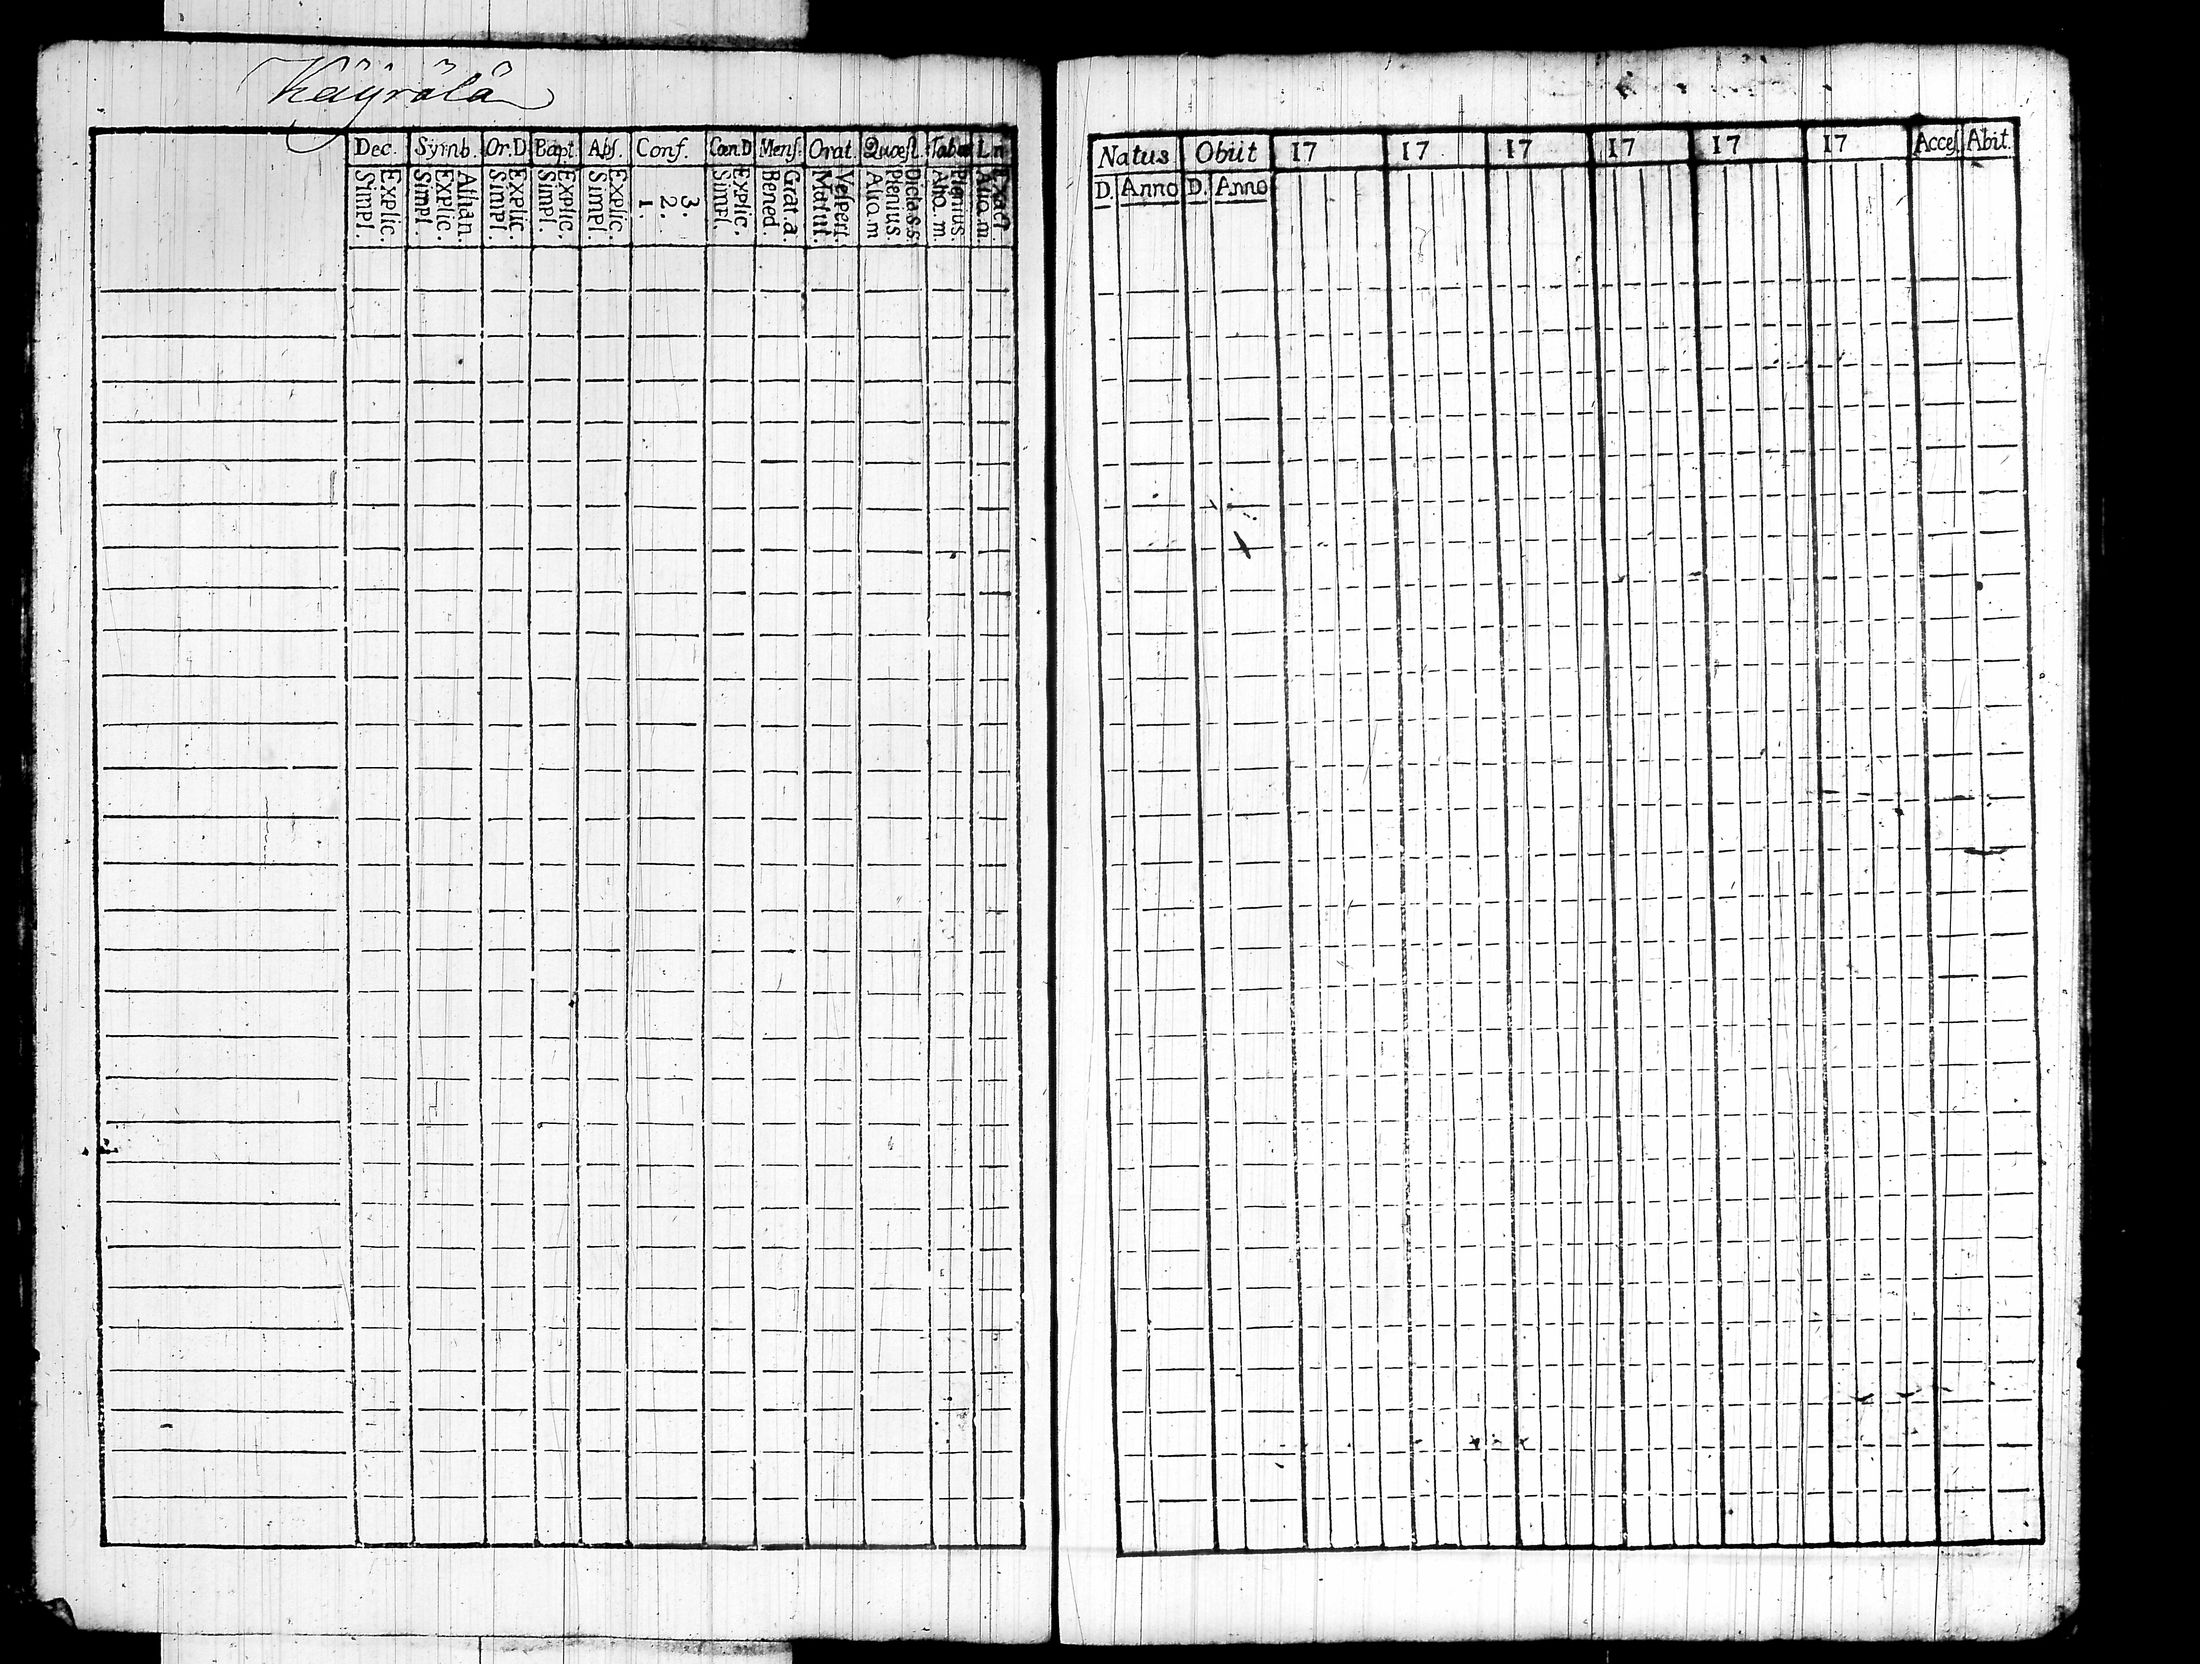 Käyrälä
Dec. Symb. Or.D Bapt. Abs. Conf. Cœn.D Mens. Orat. Quœst. Tabul
Explic. Simpl.
Athan. Explic. Simpl.
Explic. Simpl.
Explic. Simpl.
Explic. Simpl.
3. 2. 1.
Explic. Simpl.
Grat. a. Bened
Vespert. Matut.
Dicta.s.s. Plenius. Alio.m
Plenius. Alio.m.
Exact Alio.m.
Natus Obiit 17 17 17 17 17 17 Acces Abit.
D. Anno D. Anno